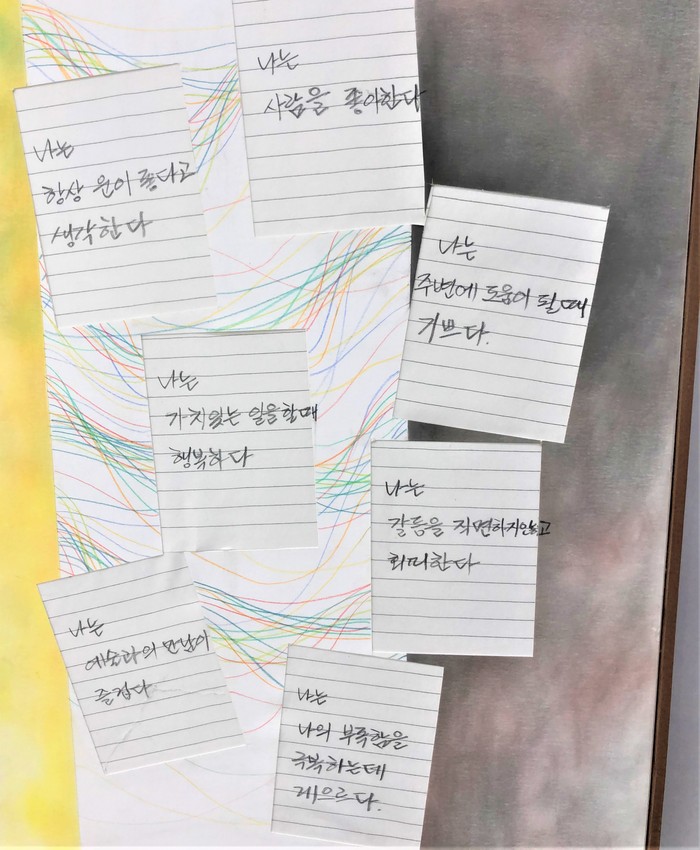 나는
사람을 좋아한다
나는
항상 운이 좋다고
생각한다
나는
주변에 도움이 될때
기쁘다.
나는
가치있는 일을할때
행복하다
나는
갈등을 직면하지않고
회피한다
나는
예술과의 만남이
즐겁다
나는
나의 부족함을
극복하는데
게으르다.